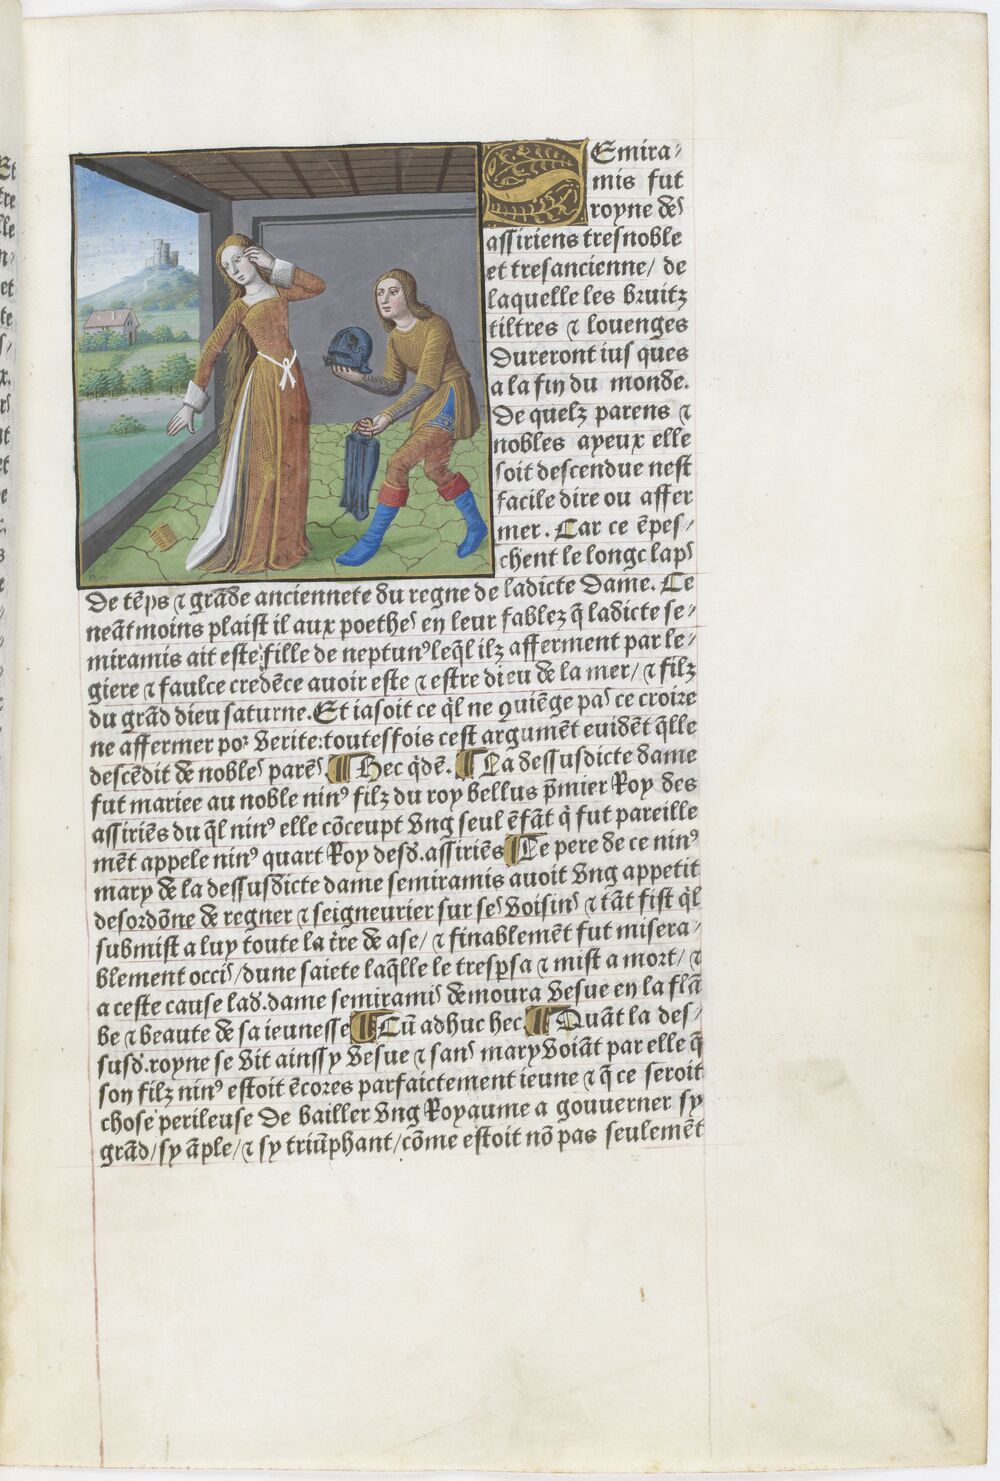 Semira-
mis fut
royne des
assiriens tresnoble
et tresancienne/ de
laquelle les bruitz
tiltres ⁊ louenges
dureront ius ques
a la fin du monde.
De quelz parens ⁊
nobles ayeux elle
soit descendue nest
facile dire ou affer
mer. Car ce ēpes-
chent le longc laps
de tēps ⁊ grāde anciennete du regne de ladicte dame. Ce
neātmoins plaist il aux poethes en leur fablez q̄ ladicte se-
miramis ait este fille de neptunꝰ leq̄l ilz afferment par le-
giere ⁊ faulce credēce auoir este ⁊ estre dieu de la mer/ ⁊ filz
du grād dieu saturne. Et iasoit ce q̄l ne ꝯuiēge pas ce croire
ne affermer por verite: toutesfois cest argumēt euidēt q̄lle
descēdit de nobles parēs. ¶ Hec q̄dē. ¶ La dessusdicte dame
fut mariee au noble ninꝰ filz du roy bellus p̄mier Roy des
assiriēs du q̄l ninꝰ elle cōceupt vng seul ēfāt q̄ fut pareille
mēt appele ninꝰ quart Roy desd. assiriēs ¶ Le pere de ce ninꝰ
mary de la dessusdicte dame semiramis auoit vng appetit
desordōne de regner ⁊ seigneurier sur ses voisins ⁊ tāt fist q̄l
submist a luy toute la tr̄e de ase/ ⁊ finablemēt fut misera-
blement occis/ dune saiete laq̄lle le tresp̄sa ⁊ mist a mort/ ⁊
a ceste cause lad. dame semiramis demoura vesue en la flā
be ⁊ beaute de sa ieunesse ¶ Cū adhuc hec ¶ Quāt la des-
susd. royne se vit ainssy vesue ⁊ sans mary voiāt par elle q̄
son filz ninꝰ estoit ēcores parfaictement ieune ⁊ q̄ ce seroit
chose perileuse de bailler vng Royaume a gouuerner sy
grād/ sy āple/ ⁊ sy triūphant/ cōme estoit nō pas seulemēt